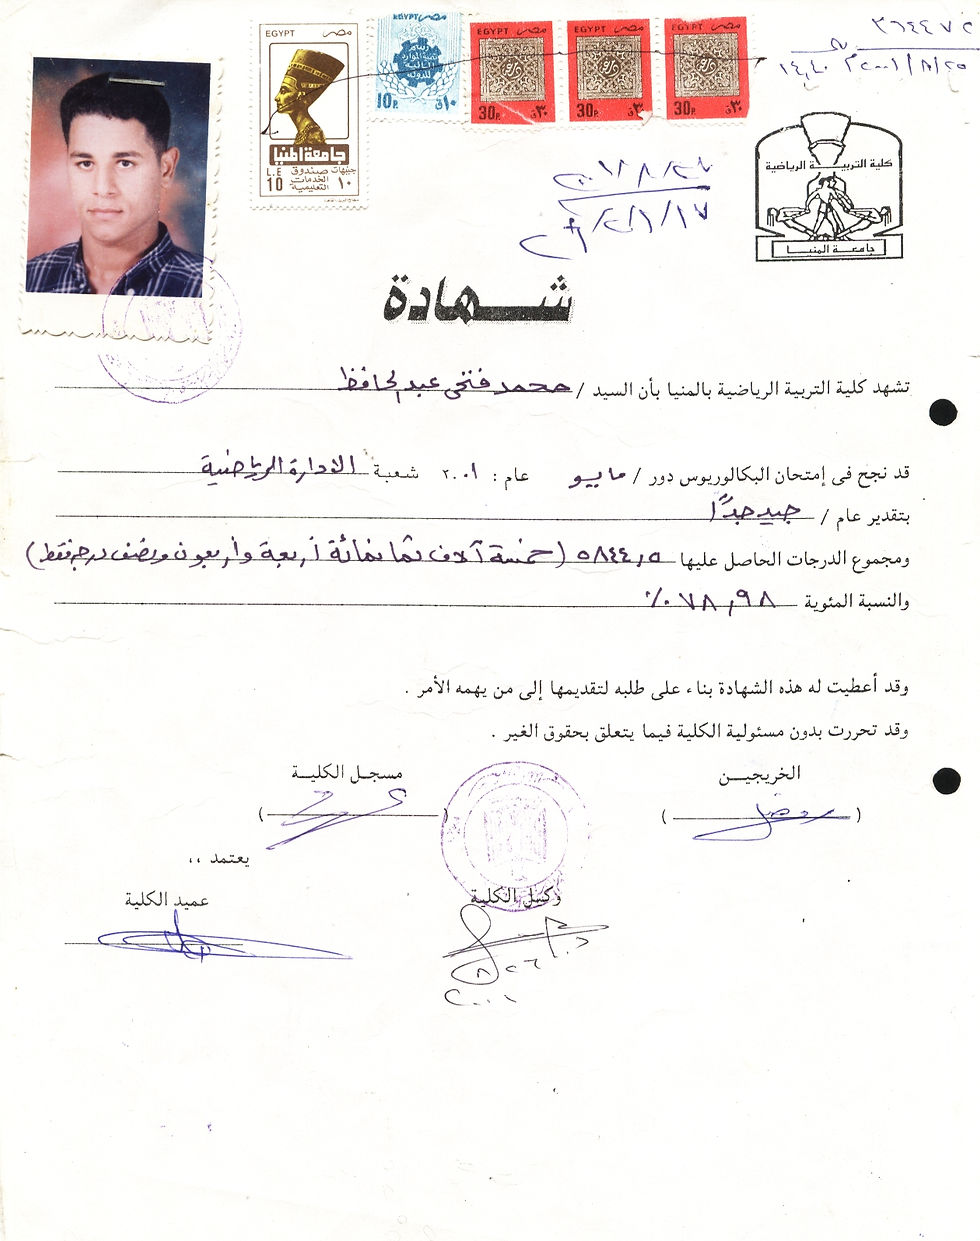 EGYPT مصر
جامعة المنيا
جنيهات صندوق
الخدمات
التعليمية
L.E 10 ١٠
EGYPT مصر
رسم
تنمية الموارد
المالية
للدولة
10P. ١٠ق
EGYPT مصر
30P. ٣٠ق
EGYPT مصر
30P. ٣٠ق
EGYPT مصر
30P. ٣٠ق
٣٦٤٤٧٢
٢٠٠١/٨/٢٥
كلية التربية الرياضية
جامعة المنيا
شهادة
تشهد كلية التربية الرياضية بالمنيا بأن السيد / محمد فتحى عبد الحافظ
قد نجح فى إمتحان البكالوريوس دور / مايو عام : ٢٠٠١ شعبة الادارة الرياضية
بتقدير عام / جيد جدًا
ومجموع الدرجات الحاصل عليها ٥٨٤٤,٥ (خمسة آلاف ثمانمائة أربعة وأربعون ونصف درجة فقط)
والنسبة المئوية ٧٨,٩٨٪
وقد أعطيت له هذه الشهادة بناء على طلبه لتقديمها إلى من يهمه الأمر .
وقد تحررت بدون مسئولية الكلية فيما يتعلق بحقوق الغير .
الخريجيـن مسجـل الكليـة
يعتمد ،،
وكيل الكلية عميد الكلية
٢٠٠١